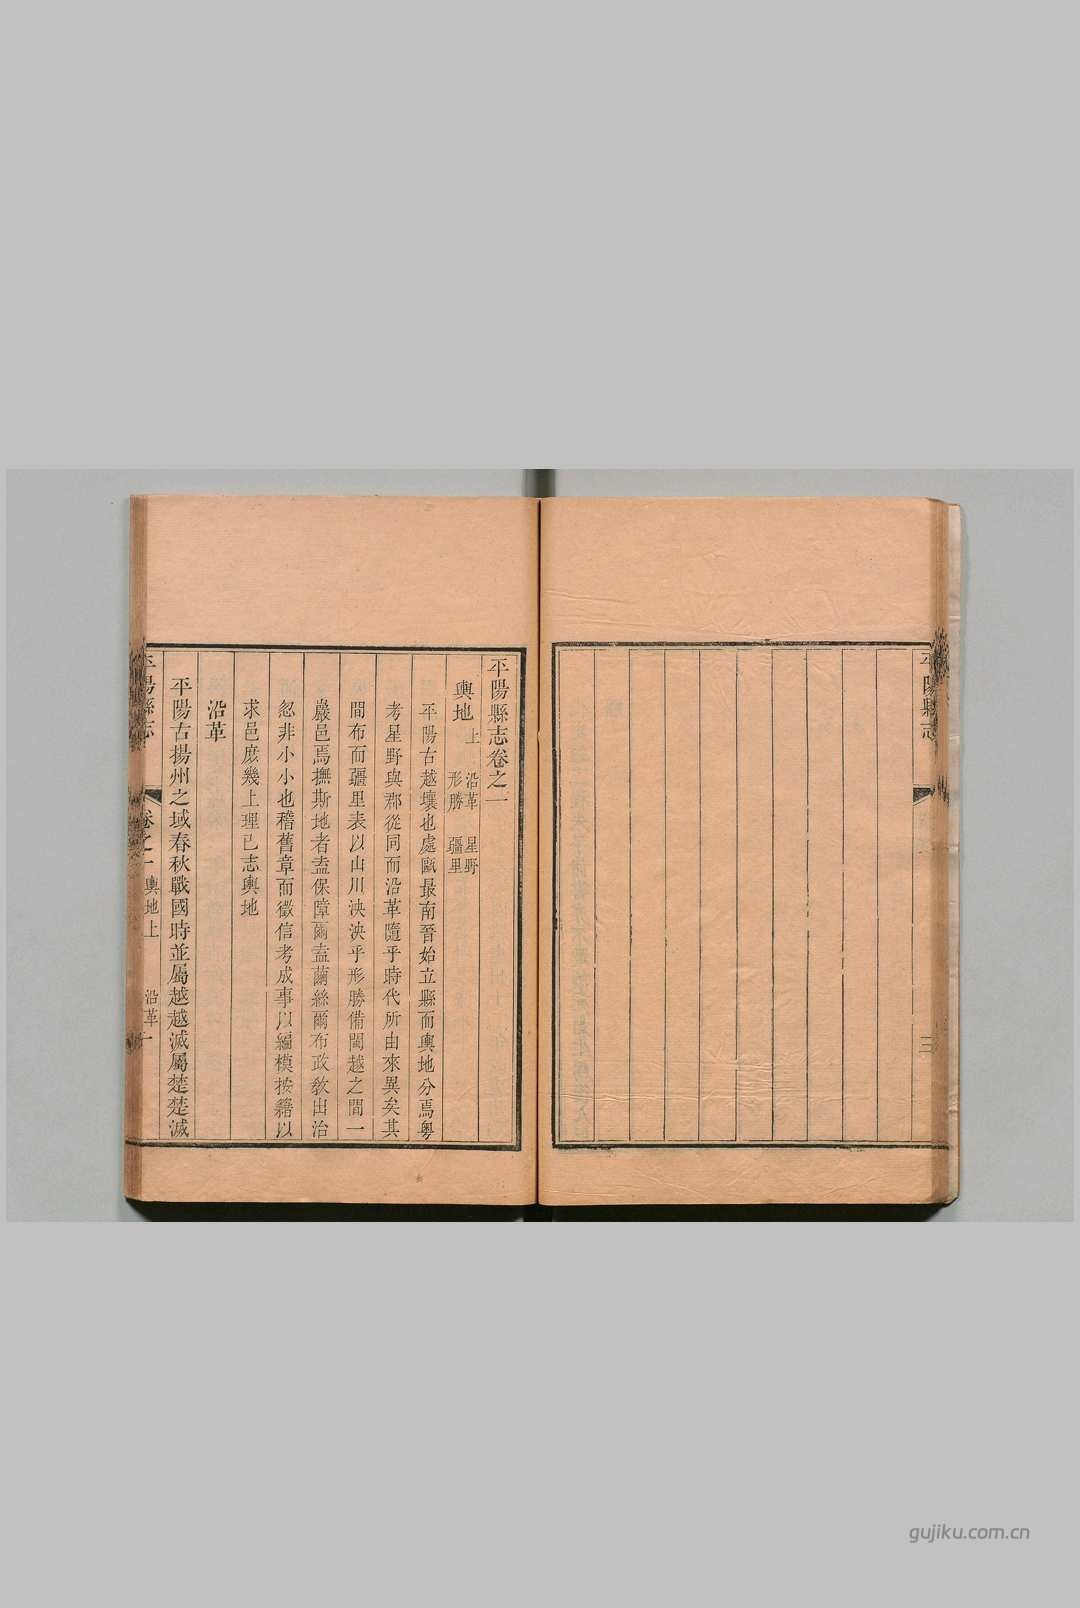 平陽縣志
三
平陽縣志卷之一
輿地上 沿革 星野 形勝 疆里
平陽古越壤也處甌最南晉始立縣而輿地分焉粵
考星野與郡從同而沿革隨乎時代所由來異矣其
間布而疆里表以山川泱泱乎形勝備閩越之間一
巖邑焉撫斯地者盍保障爾盍繭絲爾布政敎出治
忽非小小也稽舊章而徵信考成事以編模按籍以
求邑庶幾上理已志輿地
沿革
平陽古揚州之域春秋戰國時並屬越越滅屬楚楚滅
平陽縣志 卷之一 輿地上 沿革 一
gujiku.com.cn